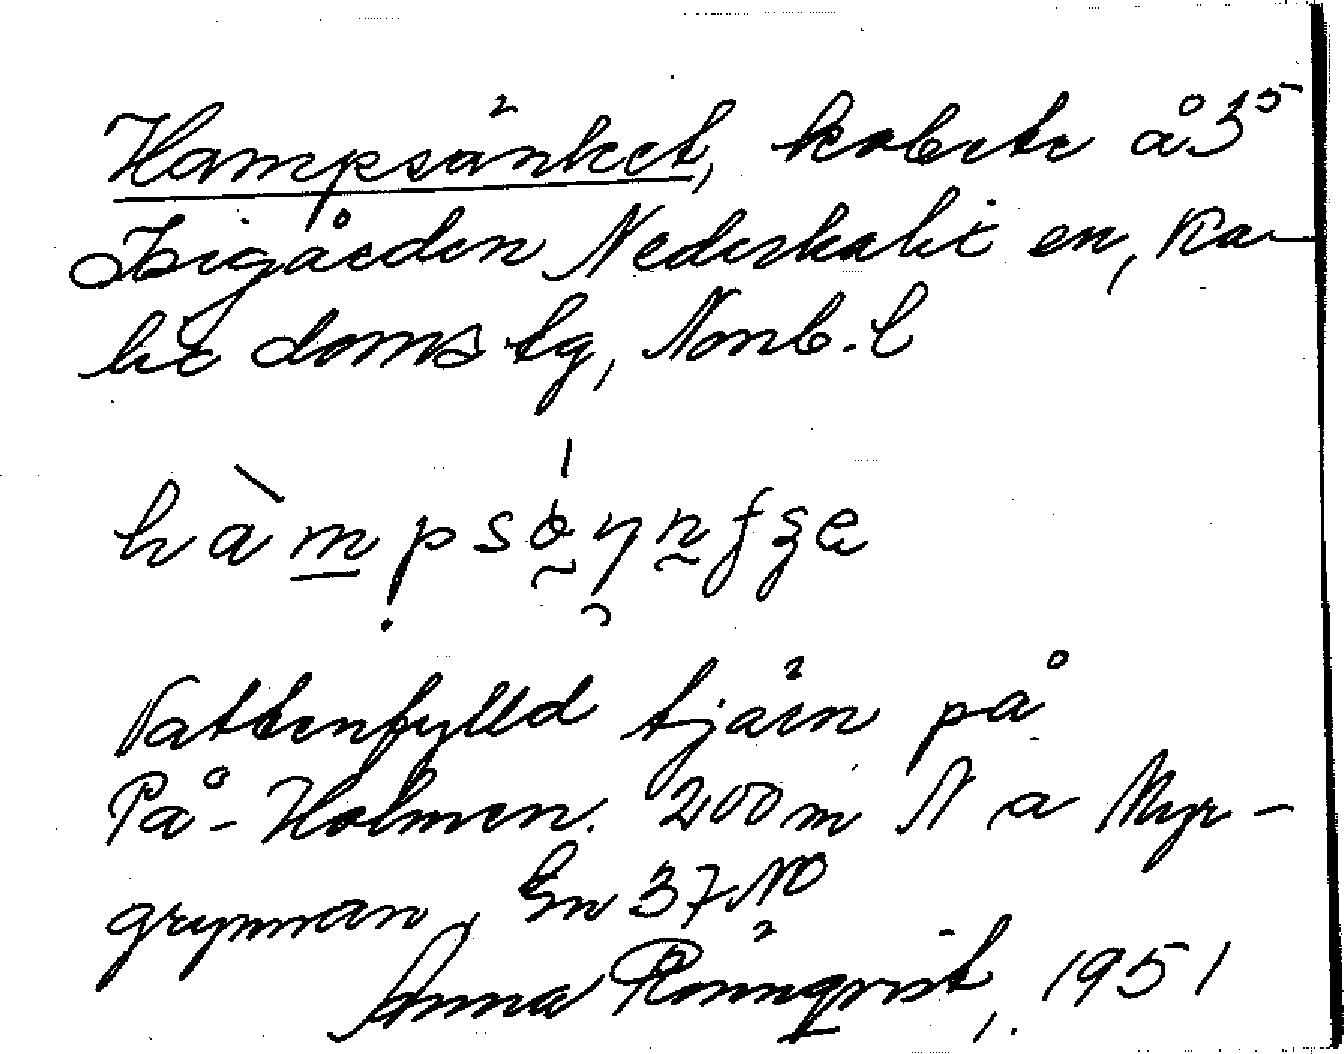 Hampsänket, kobete å 3⁵
Isigården Nederkalix en, Ka-
lix doms tg, Norrb. l
Vattenfylld tjärn på
På-Holmen. 200 m N a Myr-
grynnan, En 37 NO
Anna Rönnqvist, 1951